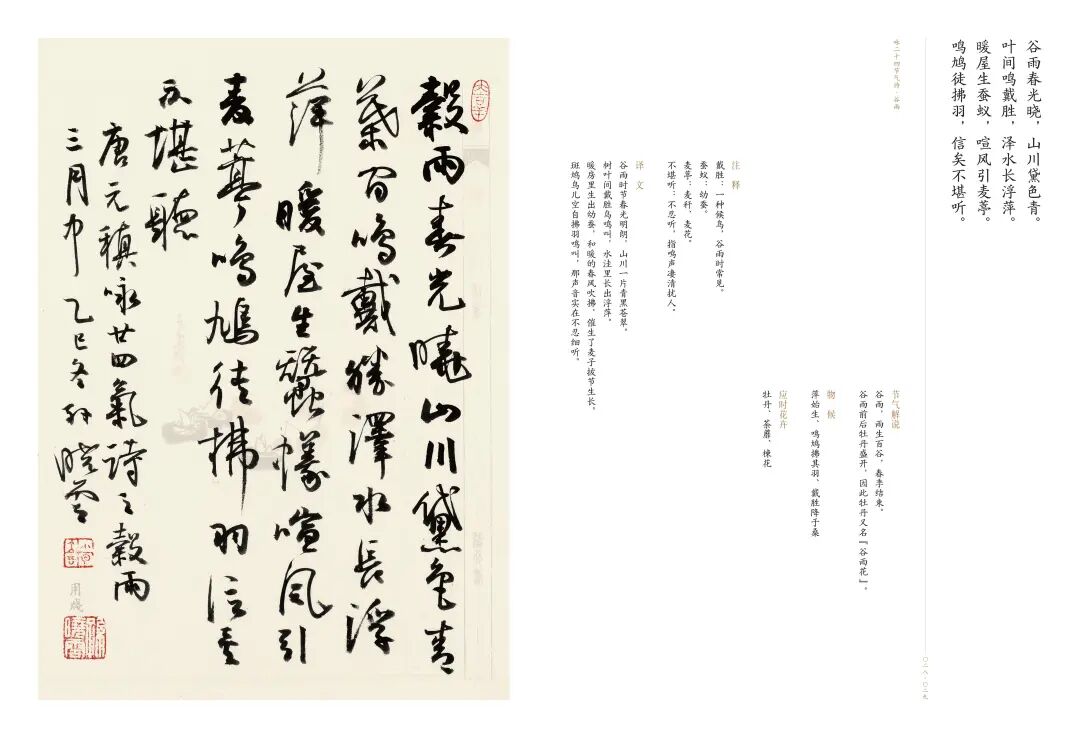 谷雨春光晓，山川黛色青。
叶间鸣戴胜，泽水长浮萍。
暖屋生蚕蚁，喧风引麦葶。
鸣鸠徒拂羽，信矣不堪听。
咏二十四节气诗·谷雨
〇二八·〇二九
节气解说
谷雨，雨生百谷，春季结束。
谷雨前后牡丹盛开，因此牡丹又名『谷雨花』。
物候
萍始生、鸣鸠拂其羽、戴胜降于桑
应时花卉
牡丹、荼蘼、楝花
注释
戴胜：一种候鸟，谷雨时常见。
蚕蚁：幼蚕。
麦葶：麦秆，麦花。
不堪听：不忍听，指鸣声凄清扰人。
译文
谷雨时节春光明朗，山川一片青黑苍翠。
树叶间戴胜鸟鸣叫，水洼里长出浮萍。
暖房里生出幼蚕，和暖的春风吹拂，催生了麦子拔节生长。
斑鸠鸟儿空自拂羽鸣叫，那声音实在不忍细听。
穀雨春光曉山川黛色青
葉間鳴戴勝澤水長浮
萍暖屋生蠶蟻喧風引
麥葶鳴鳩徒拂羽信矣
不堪聽
唐元稹咏廿四氣詩之穀雨
三月中 乙巳冬 孙晓雲
用牋
大吉羊